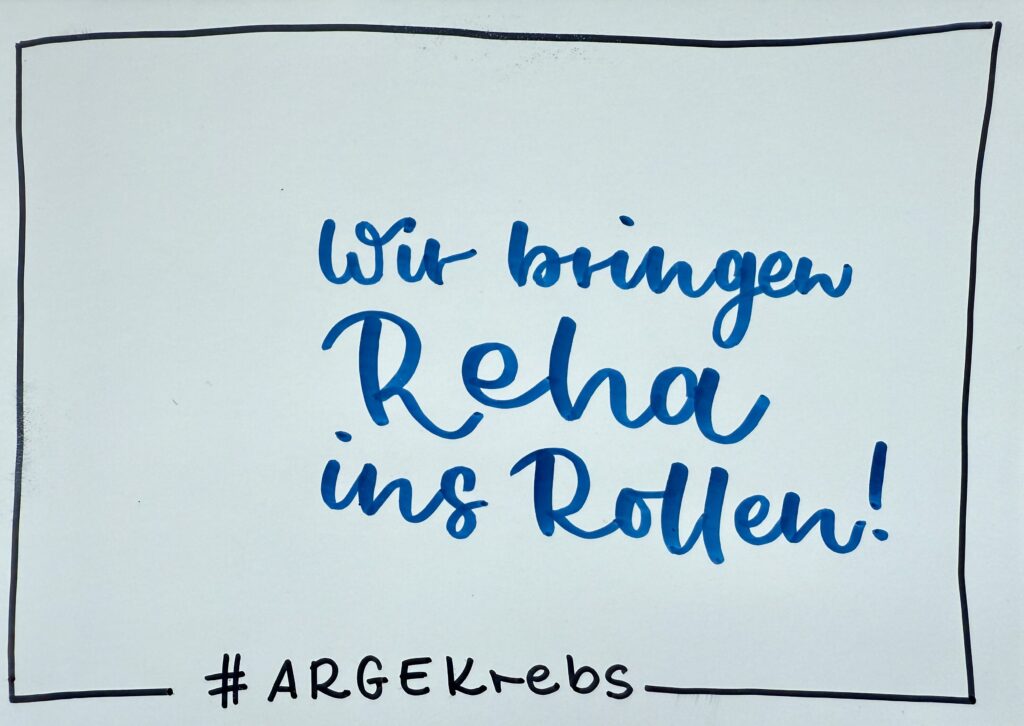 Wir bringen
Reha
ins Rollen!
#ARGEKrebs